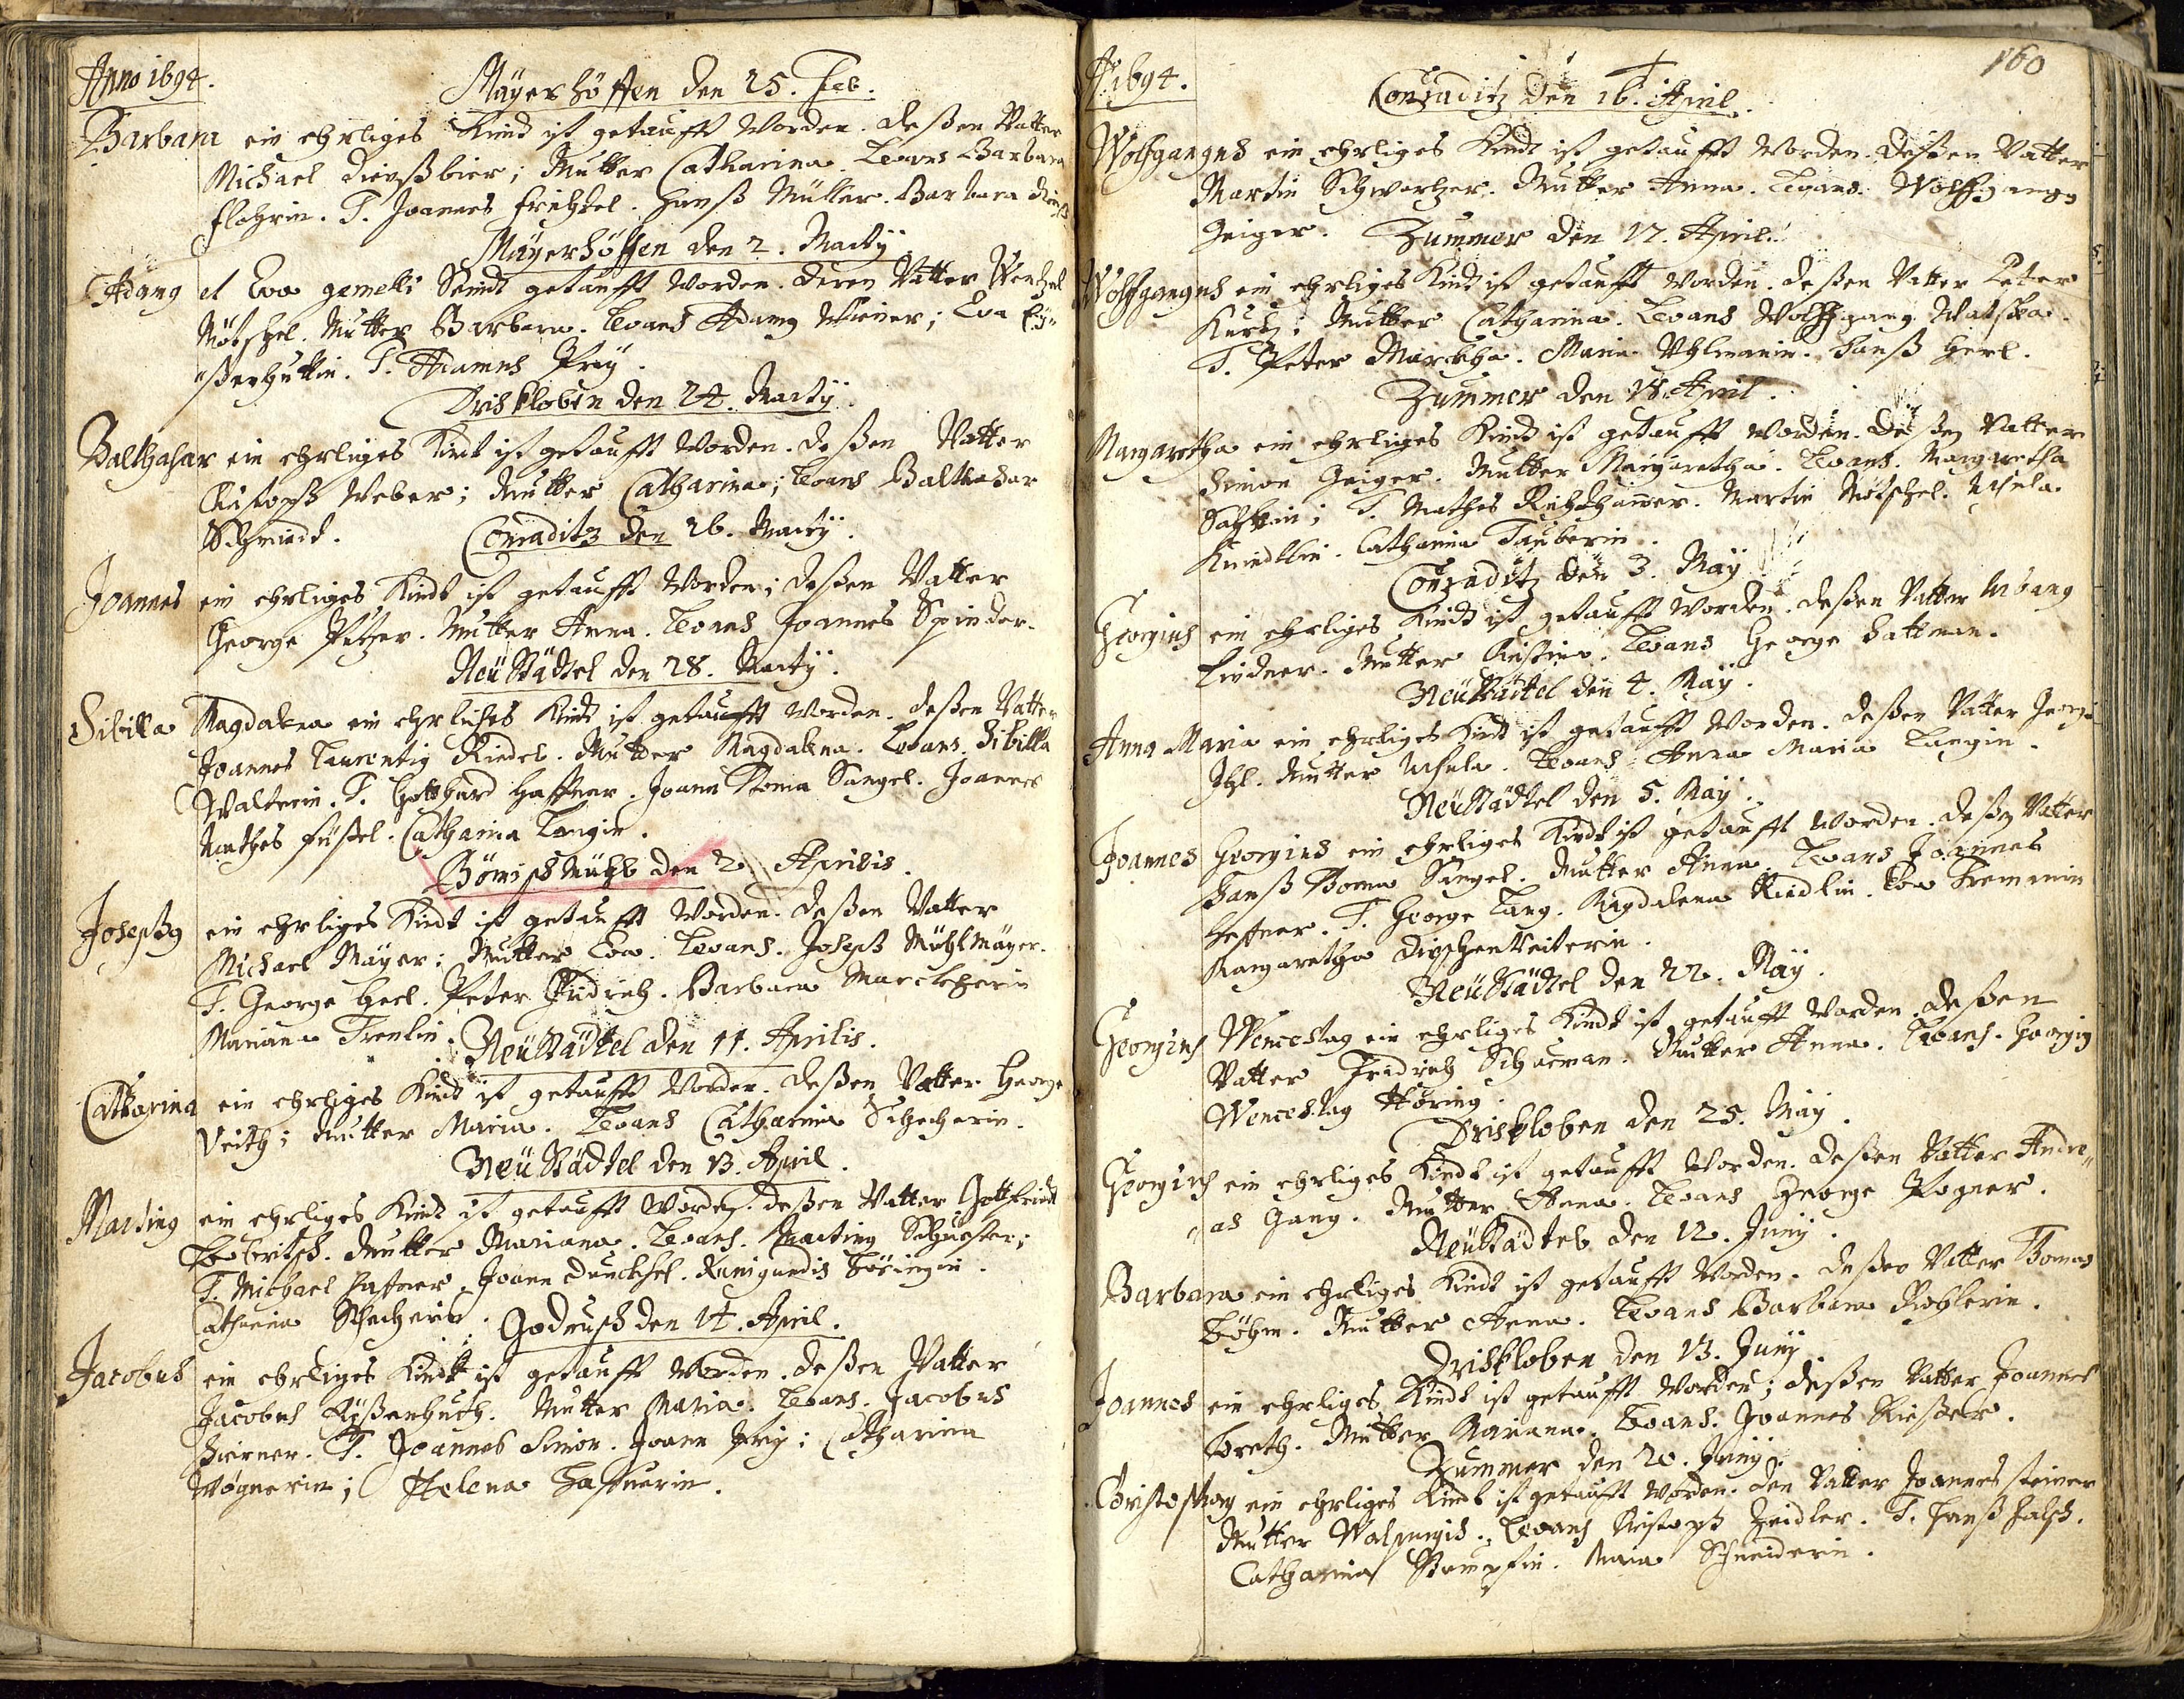 Anno 1694.
Mäyerhöffen den 25. Feb.
Barbara ein ehrliges Kind ist getaufft worden. deßen Vatter
Michael ; Mutter Catharina. Levans Barbara
T. Joannes . Hanß Müller. Barbara
Mäyerhöffen den 2. Martÿ
Adamg et Eva gemelli Seind getaufft worden. deren Vatter Wentzel
Nötschel. Mutter Barbara. Levans Adamg ; Eva
T. Adamus
Driskloben den 24. Martÿ.
Balthasar ein ehrliges Kindt ist getaufft worden. deßen Vatter
Christoph Weber; Mutter Catharina; Levans Balthasar
Schmiedt.
Conraditz den 26. Martÿ.
Joannes ein ehrliges Kindt ist getaufft worden; deßen Vatter
George . Mutter Anna. Levans Joannes
Neü Städtel den 28. Martÿ.
Sibilla Magdalena ein ehrliches Kind ist getaufft worden. deßen Vatter
Joannes Laurentig Riedel. Mutter Magdalena. Levans. Sibilla
Walterin. T. Gotthard Haffner. Joann Toma Sangel. Joannes
Mathes füßel. Catharina Langin.
Bömischmühl den 2. Aprilis.
Josephg ein ehrliges Kindt ist getaufft worden. deßen Vatter
Michael Mäyer; Mutter Eva. Levans. Joseph Mühlmäyer.
T. George Gerl. Peter Fridrich. Barbara
Mariana
Neü Städtel den 11. Aprilis.
Catharina ein ehrliges Kindt ist getaufft worden. deßen Vatter George
Veith; Mutter Maria. Levans Catharina Schecherin.
Neü Städtel den 13. April.
Marting ein ehrliges Kindt ist getaufft worden. deßen Vatter Gottfriedt
. Mutter Mariana. Levans. Marting Schuster;
T. Michael Haffner. Joann . Kunigundis
Catharina Schecherin.
Godrusch den 14. April.
Jacobus ein ehrliges Kindt ist getaufft worden. deßen Vatter
Jacobus Eÿßenhuth. Mutter Maria. Levans. Jacobus
T. Joannes Simon. Joann ; Catharina
Wögnerin; Helena Haffnerin.
A 1694.
160
Conraditz den 16. April.
Wolfgangus ein ehrliges Kindt ist getaufft worden. deßen Vatter
Martin Schwartzer. Mutter Anna. Levans. Wolffgangg
Geiger.
Zummer den 17. April.
Wolffgangus ein ehrliges Kindt ist getaufft worden. deßen Vatter Peter
Kurtz; Mutter Catharina. Levans Wolffgang Watzka.
T. Peter . Maria Uhlmanin. Hanß Gerl.
Zummer den 18. April.
Margaretha ein ehrliges Kindt ist getaufft worden. deßen Vatter
Simon Geiger. Mutter Margaretha. Levans. Margaretha
; T. Mathes . Martin Nötschel. Ursula
Catharina Tauberin.
Conraditz den 3. Maÿ
Georgius ein ehrliges Kindt ist getaufft worden. deßen Vatter Urbang
Lindner. Mutter Christina. Levans George Hattman.
Neü Städtel den 4. Maÿ.
Anna Maria ein ehrliges Kindt ist getaufft worden. deßen Vatter
Ihl. Mutter Ursula. Levans Anna Maria Langin.
Neü Städtel den 5. Maÿ.
Joannes Georgius ein ehrliges Kindt ist getaufft worden. deßen Vatter
Hanß Toma Sangel. Mutter Anna. Levans Joannes
Heffner. T. George Lang. Magdalena Riedlin. Eva
Margaretha
Neü Städtel den 22. Maÿ.
Georgius Wenceslag ein ehrliges Kindt ist getaufft worden. deßen
Vatter Fridrich . Mutter Anna. Levans. Georgig
Wenceslag Höring.
Driskloben den 25. Maÿ.
Georgius ein ehrliges Kindt ist getaufft worden. deßen Vatter Andre„
„as Gang. Mutter Anna. Levans George Wogner.
Neü Städtel den 12. Junÿ.
Barbara ein ehrliges Kindt ist getaufft worden. deßen Vatter Tomas
Böhm. Mutter Anna. Levans Barbara Rohlerin.
Driskloben den 13. Junÿ
Joannes ein ehrliges Kindt ist getaufft worden; deßen Vatter Joannes
. Mutter Mariana. Levans. Joannes
Zummer den 20. Junÿ.
Christophorg ein ehrliges Kindt ist getaufft worden. den Vatter Joannes Steiner
Mutter Walpurgis. Levans Christoph Zeidler. T. Hanß
Catharina . Maria Schneiderin.